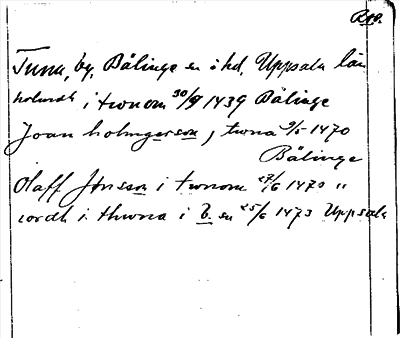 R19.
Tuna, by, Bälinge sn o hd, Uppsala län
holmst i twnom 30/9 1439 Bälinge
Joan holmgerson, twna 9/5 1470
Bälinge
Olaff Jønsson i twnom 27/6 1470 "
iordh i thwna i B. sn 25/6 1473 Uppsala